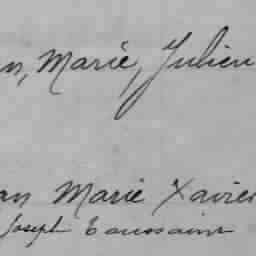 n, Marie, Julien
an Marie Xavier
Joseph Toussaint